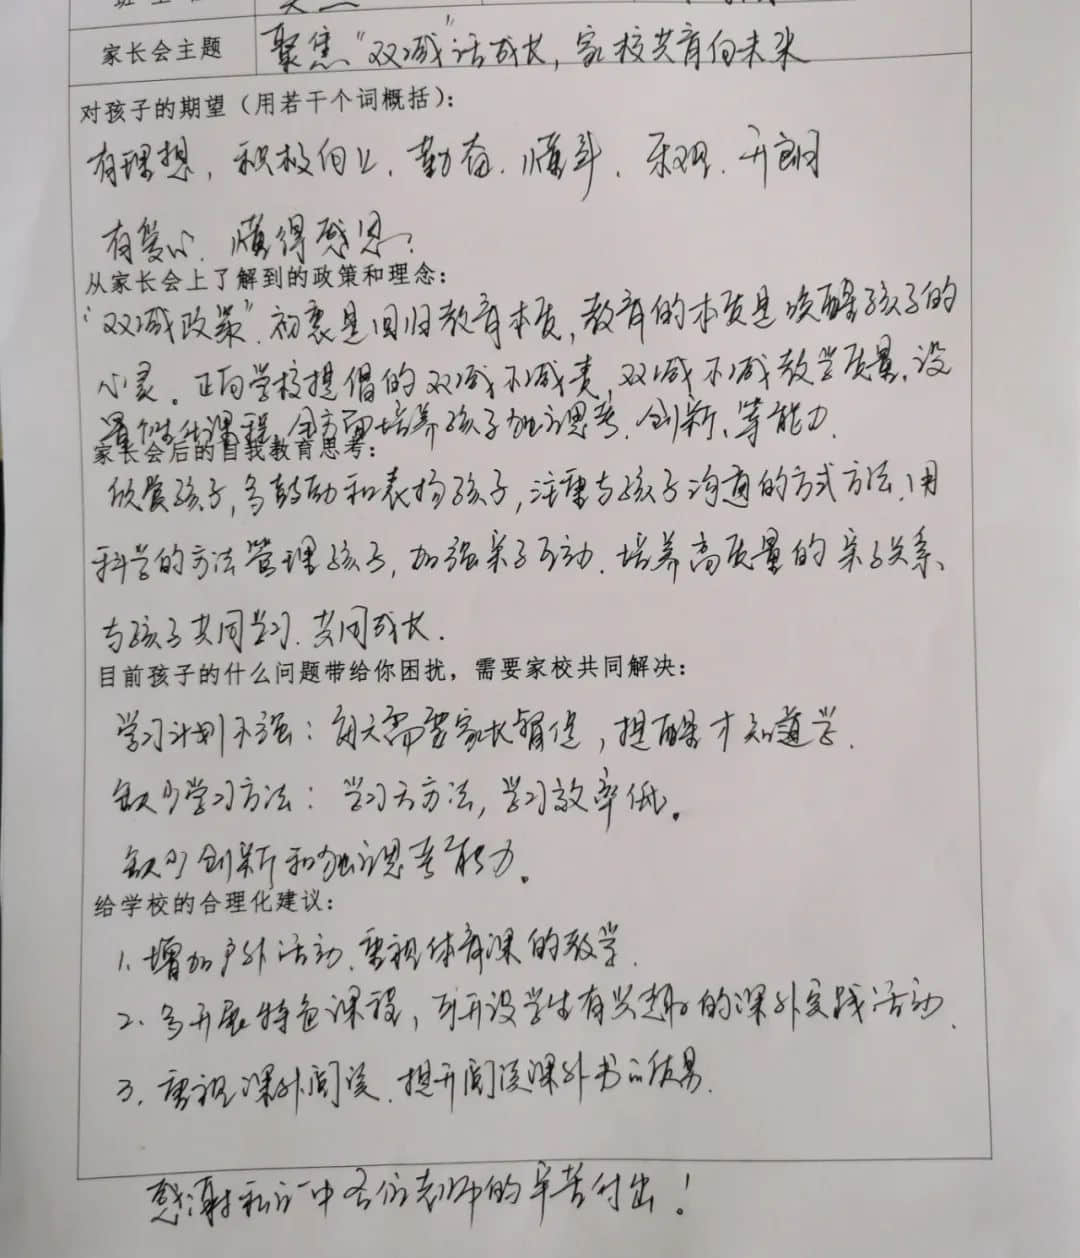 家长会主题 聚焦“双减”话成长，家校共育向未来
对孩子的期望（用若干个词概括）：
有理想，积极向上、勤奋、懂事、乐观、开朗
有爱心、懂得感恩。
从家长会上了解到的政策和理念：
“双减政策”初衷是回归教育本质，教育的本质是唤醒孩子的
心灵。正向学校提倡的双减不减责，双减不减教学质量，设
置个性化课程，全方面培养孩子独立思考、创新、等能力.
家长会后的自我教育思考：
欣赏孩子，多鼓励和表扬孩子，注重与孩子沟通的方式方法，用
科学的方法管理孩子，加强亲子互动、培养高质量的亲子关系、
与孩子共同学习、共同成长.
目前孩子的什么问题带给你困扰，需要家校共同解决：
学习计划不强：每天需要家长督促，提醒才知道学.
缺少学习方法：学习无方法，学习效率低。
缺少创新和独立思考能力。
给学校的合理化建议：
1. 增加户外活动、重视体育课的教学.
2. 多开展特色课程，可开设学生有兴趣的课外实践活动.
3. 重视课外阅读、提升阅读课外书的质量.
感谢 中各位老师的辛苦付出！